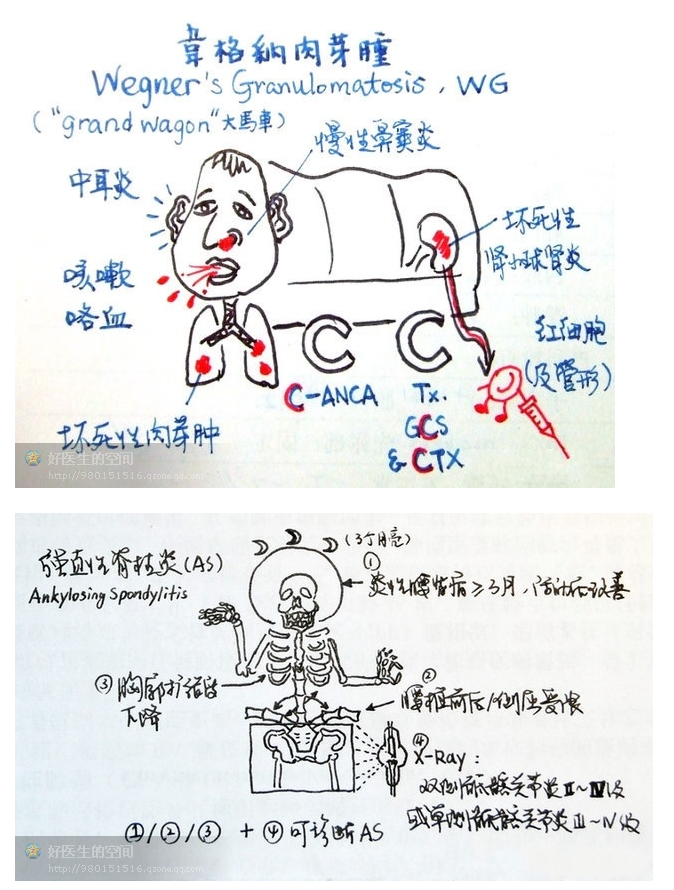 韋格納肉芽腫
Wegner's Granulomatosis, WG
("grand wagon"大馬車)
慢性鼻竇炎
中耳炎
坏死性
肾小球肾炎
咳嗽
咯血
红细胞
(及管形)
C C
C-ANCA
Tx.
GCS
& CTX
坏死性肉芽肿
好医生的空间
http://980151516.qzone.qq.com
(3个月亮)
强直性脊柱炎(AS)
Ankylosing Spondylitis
①
炎性腰背痛≥3月,活动后改善
③胸廓扩张度
下降
②
腰椎前后/侧屈受限
④
X-Ray:
双侧骶髂关节炎Ⅱ~Ⅳ级
或单侧骶髂关节炎Ⅲ~Ⅳ级
①/②/③ + ④可诊断AS
好医生的空间
http://980151516.qzone.qq.com